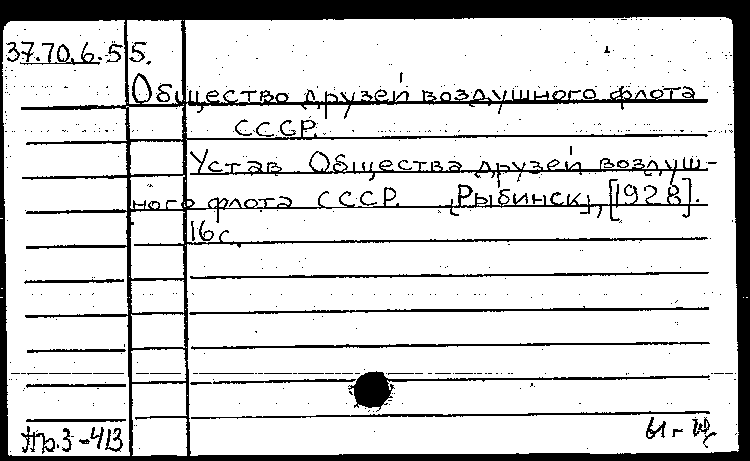 37.70.6.55.
Общество друзей воздушного флота
СССР.
Устав Общества друзей воздуш-
ного флота СССР. [Рыбинск], [1928].
16с.
Пр.3-413